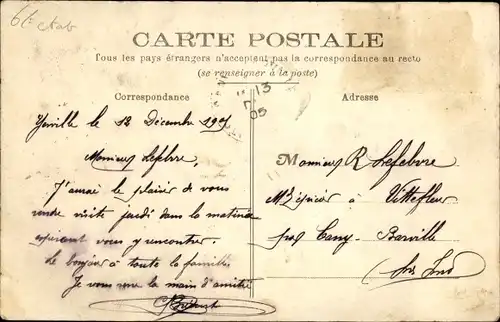 CARTE POSTALE
Tous les pays étrangers n'acceptent pas la correspondance au recto
(se renseigner à la poste)
Correspondance
Adresse
13
05
Yerville le 12 Décembre 1905
Monsieur Lefebvre
J'aurai le plaisir de vous
rendre visite jeudi dans la matinée
espérant vous y rencontrer.
Le bonjour à toute la famille
Je vous serre la main d'amitié
Monsieur R Lefebvre
à Vittefleur
par Cany-Barville